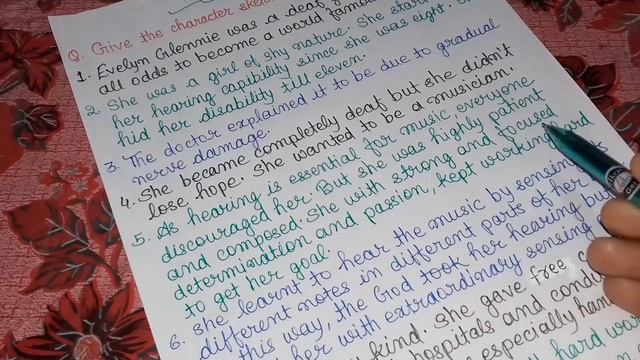 Q. Give the character sket
1. Evelyn Glennie was a deaf
all odds to become a world famous
2. She was a girl of shy nature. She start
her hearing capibility since she was eight.
hid her disability till eleven.
3. The doctor explained it to be due to gradual
nerve damage.
4. She became completely deaf but she didn't
lose hope. She wanted to be a musician.
5. As hearing is essential for music, everyone
discouraged her. But she was highly patient
and composed. She with strong and focused
determination and passion, kept working
to get her goal.
6. She learnt to hear the music by sensing
different notes in different parts of her
this way, the God took her hearing bu
her with extraordinary sensing
kind. She gave free
hospitals and condu
especially han
hard wor